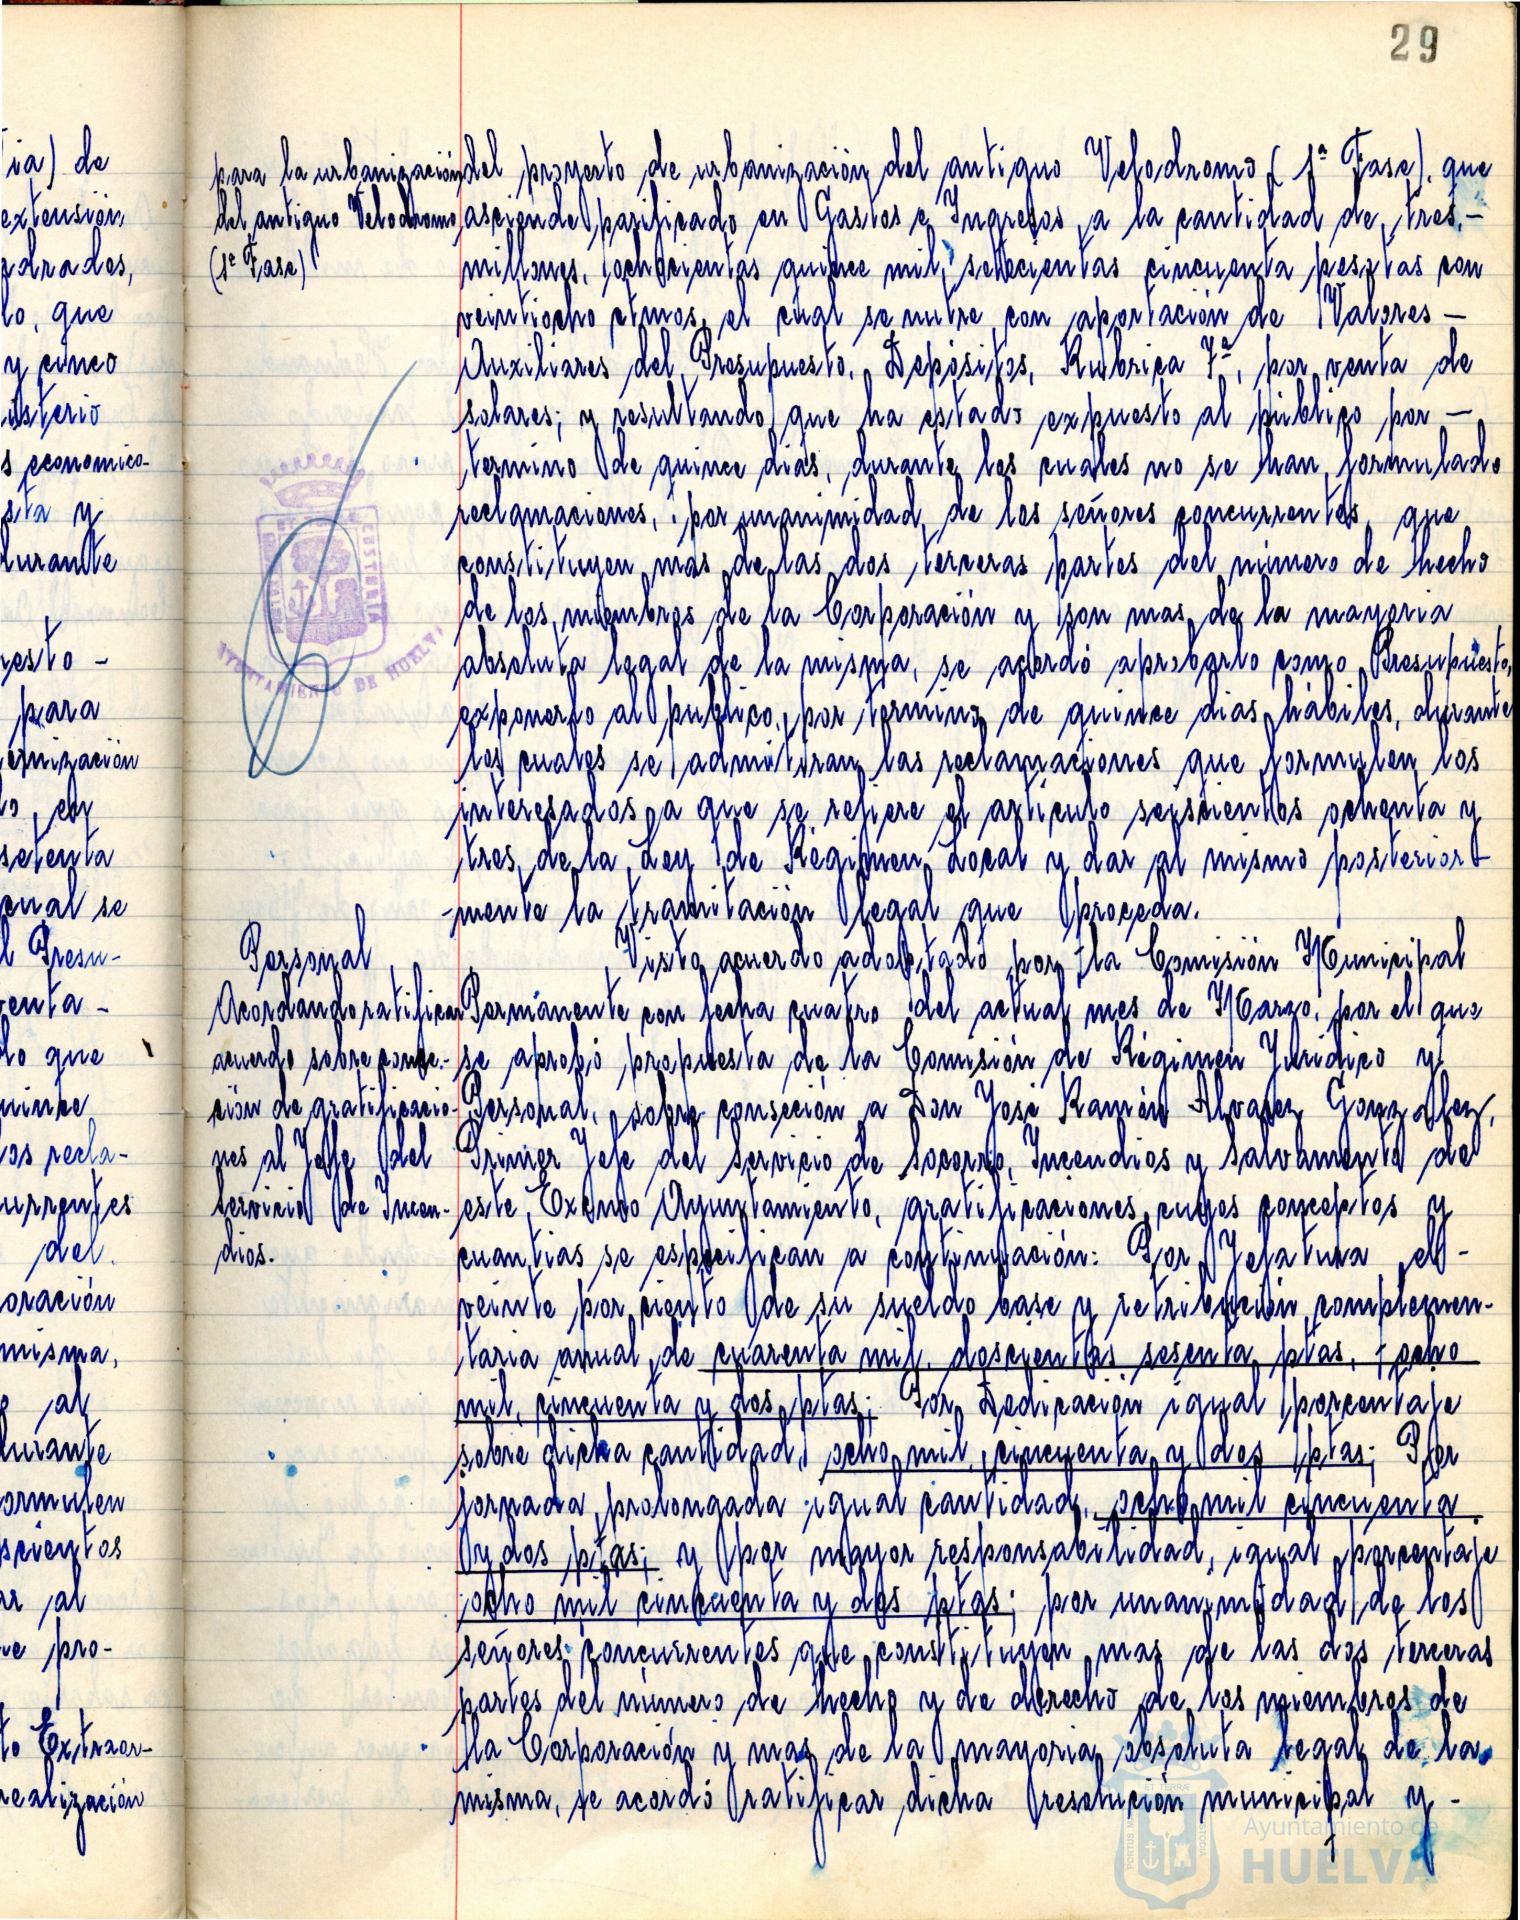 29
para la urbanización
del antiguo Velodromo
(1ª Fase)
del proyecto de urbanización del antiguo Velodromo (1ª Fase), que
asciende parificado en Gastos e Ingresos a la cantidad de tres.-
millones, ochocientas quince mil, setecientas cincuenta pesetas con
veintiocho ctmos, el cual se nutre con aportación de Valores -
Auxiliares del Presupuesto, Depósitos, Rubrica 7ª, por venta de
solares; y resultando que ha estado expuesto al público por -
termino de quince dias, durante los cuales no se han formulado
reclamaciones, por unanimidad de los señores concurrentes, que
constituyen mas de las dos terceras partes del número de hecho
de los miembros de la Corporación y son mas de la mayoria
absoluta legal de la misma, se acordó aprobarlo como Presupuesto,
exponerlo al público, por termino de quince dias hábiles, durante
los cuales se admitiran las reclamaciones que formulen los
interesados a que se refiere el artículo seiscientos ochenta y
tres de la Ley de Régimen Local y dar al mismo posterior-
mente la tramitación legal que proceda.
Personal
Acordando ratificar
acuerdo sobre conce-
ción de gratificacio-
nes al Jefe del
Servicio de Incen-
dios.
Visto acuerdo adoptado por la Comisión Municipal
Permanente con fecha cuatro del actual mes de Marzo, por el que
se aprobó propuesta de la Comisión de Régimen Jurídico y
Personal, sobre conseción a Don José Ramón Alvarez Gonzalez,
Primer Jefe del Servicio de Socorro, Incendios y Salvamento de
este Excmo Ayuntamiento, gratificaciones cuyos conceptos y
cuantias se especifican a continuación: Por Jefatura el -
veinte por ciento de su sueldo base y retribución complemen-
taria anual de cuarenta mil doscientas sesenta ptas, ocho
mil, cincuenta y dos ptas; Por Dedicación igual porcentaje
sobre dicha cantidad, ocho mil, cincuenta y dos ptas; Por
jornada prolongada igual cantidad, ocho mil cincuenta
y dos ptas; y por mayor responsabilidad, igual porcentaje
ocho mil cincuenta y dos ptas; por unanimidad de los
señores concurrentes que constituyen mas de las dos terceras
partes del número de hecho y de derecho de los miembros de
la Corporación y mas de la mayoria absoluta legal de la
misma, se acordó ratificar dicha resolución municipal y -
ia) de
extensión
adrados,
lo, que
y cinco
isterio
s economico-
sta y
durante
esto -
para
ernización
lo, en
setenta
cual se
l Presu-
venta -
do que
uince
os recla-
urrentes
del
oración
misma,
al
durante
ormulen
scientos
ar al
e pro-
to Extraor-
realización
AYUNTAMIENTO DE HUELVA
Ayuntamiento de
HUELVA